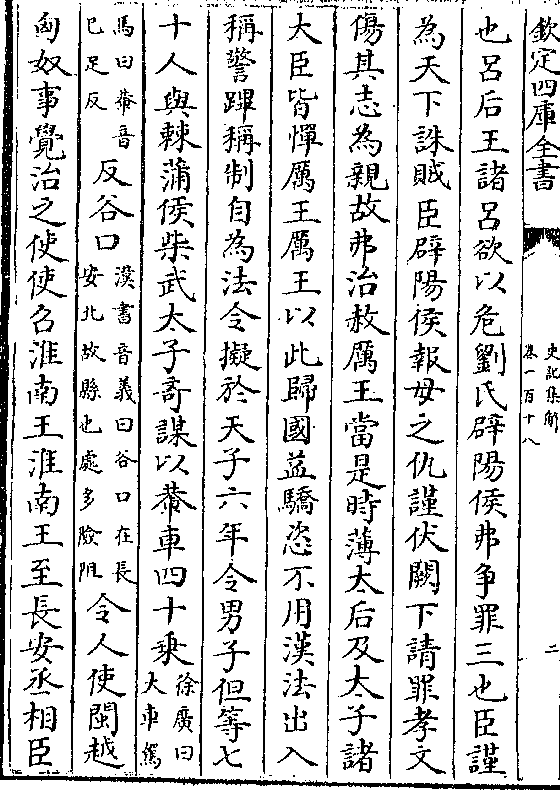 欽定四庫全書
史記集解
卷一百十八
二
也呂后王諸呂欲以危劉氏辟陽侯弗争罪三也臣謹
為天下誅賊臣辟陽侯報母之仇謹伏闕下請罪孝文
傷其志為親故弗治赦厲王當是時薄太后及太子諸
大臣皆憚厲王厲王以此歸國益驕恣不用漢法出入
稱警蹕稱制自為法令擬於天子六年令男子但等七
十人與棘蒲侯柴武太子奇謀以輂車四十乗
徐廣曰
大車駕
馬曰輂音
巳足反
反谷口
漢書音義曰谷口在長
安北故縣也處多險阻
令人使閩越
匈奴事覺治之使使召淮南王淮南王至長安丞相臣